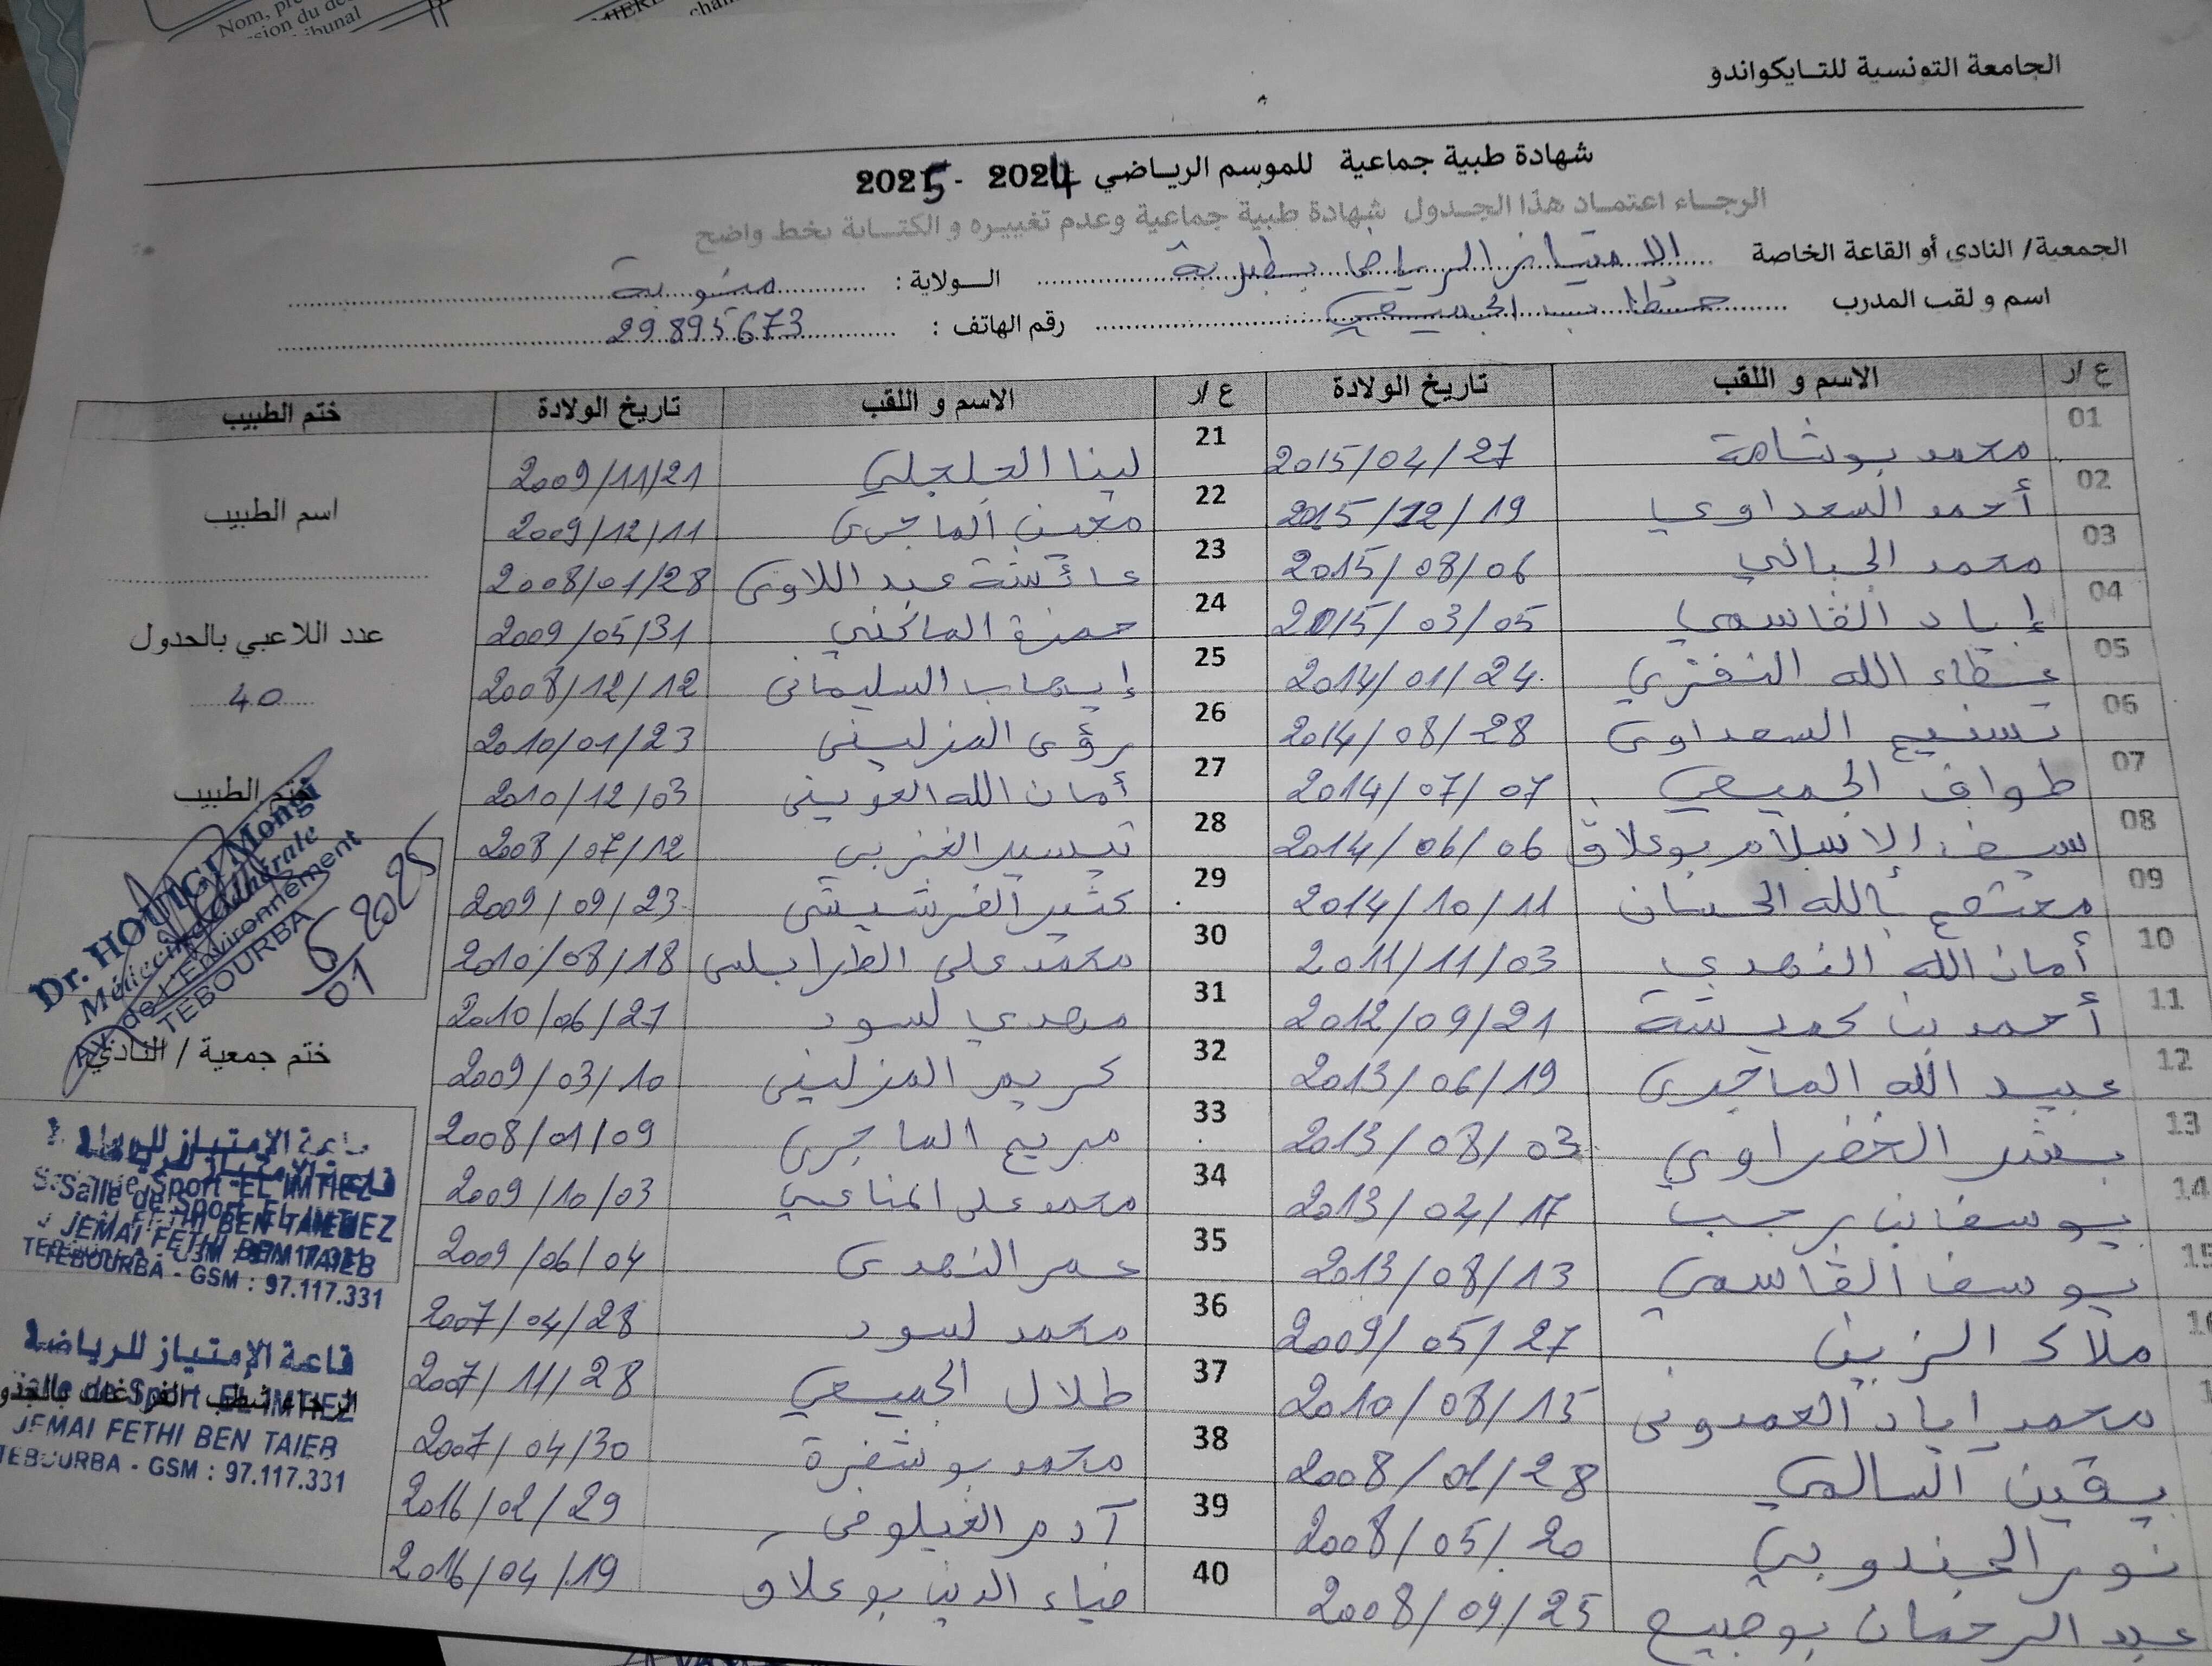 Nom, pr
sion du de
ibunal
MIERE
chan
الجامعة التونسية للتايكواندو
شهادة طبية جماعية للموسم الرياضي 2024 - 2025
الرجاء اعتماد هذا الجدول شهادة طبية جماعية وعدم تغييره و الكتابة بخط واضح
الجمعية/ النادي أو القاعة الخاصة الامتياز الرياضي بطبربة الولاية : منوبة
اسم و لقب المدرب خطاب الجميعي رقم الهاتف : 29895673
ع /ر الاسم و اللقب تاريخ الولادة ع /ر الاسم و اللقب تاريخ الولادة ختم الطبيب
01 محمد بوشامة 2015/04/27 21 لينا الجلجلي 2009/11/21
02 أحمد السعداوي 2015/12/19 22 معين الماجري 2009/12/11
03 محمد الجبالي 2015/08/06 23 عائشة عبد اللاوي 2008/01/28
04 إياد القاسمي 2015/03/05 24 حمزة الماكني 2009/05/31
05 عطاء الله النفزي 2014/01/24 25 إيهاب السليماني 2008/12/12
06 تسنيم السعداوي 2014/08/28 26 رؤى المزليني 2010/01/23
07 طواف الجميعي 2014/07/07 27 أمان الله العويني 2010/12/03
08 سيف الاسلام بوعلاق 2014/06/06 28 تيسير الغزبي 2008/07/12
09 معتصم بالله الحسان 2014/10/11 29 كثير الفرشيشي 2009/09/23
10 أمان الله النهدي 2011/11/03 30 محمد علي الطرابلسي 2010/08/18
11 أحمد بن كميشة 2012/09/21 31 مهدي لسود 2010/06/27
12 عبيد الله الماجري 2013/06/19 32 كريم المزليني 2009/03/10
13 بشر الخضراوي 2013/08/03 33 مريم الماجري 2008/01/09
14 يوسف بن رجب 2013/04/17 34 محمد علي المناعي 2009/10/03
15 يوسف القاسمي 2013/08/13 35 عمر النهدي 2009/06/04
ملاك الزين 2009/05/27 36 محمد لسود 2007/04/28
محمد إياد العمدوني 2010/08/15 37 طلال الجميعي 2007/11/28
يقين السالمي 2008/01/28 38 محمد بوشفرة 2007/04/30
نور الجندوبي 2008/05/20 39 آدم الغيلوفي 2016/02/29
عبد الرحمان بوصبيع 2008/09/25 40 ضياء الدين بوعلاق 2016/04/19
اسم الطبيب
عدد اللاعبي بالجدول
40
ختم الطبيب
Dr. HOUIGI Mongi
Médecine Générale
Av. de L'Environnement
TEBOURBA
6/01 2025
ختم جمعية / النادي
قاعة الإمتياز للرياضة
Salle de Sport EL IMTIEZ
JEMAI FETHI BEN TAIEB
TEBOURBA - GSM : 97.117.331
قاعة الإمتياز للرياضة
Salle de Sport EL IMTIEZ
الرجاء شطب الفراغات بالجدو
JEMAI FETHI BEN TAIEB
TEBOURBA - GSM : 97.117.331